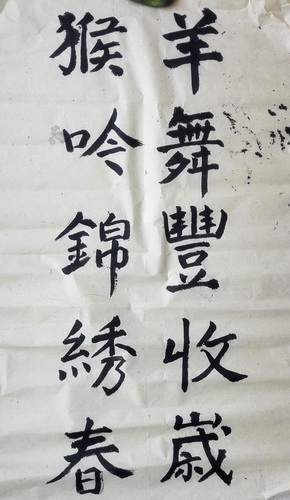 羊舞豐收歲
猴吟錦綉春